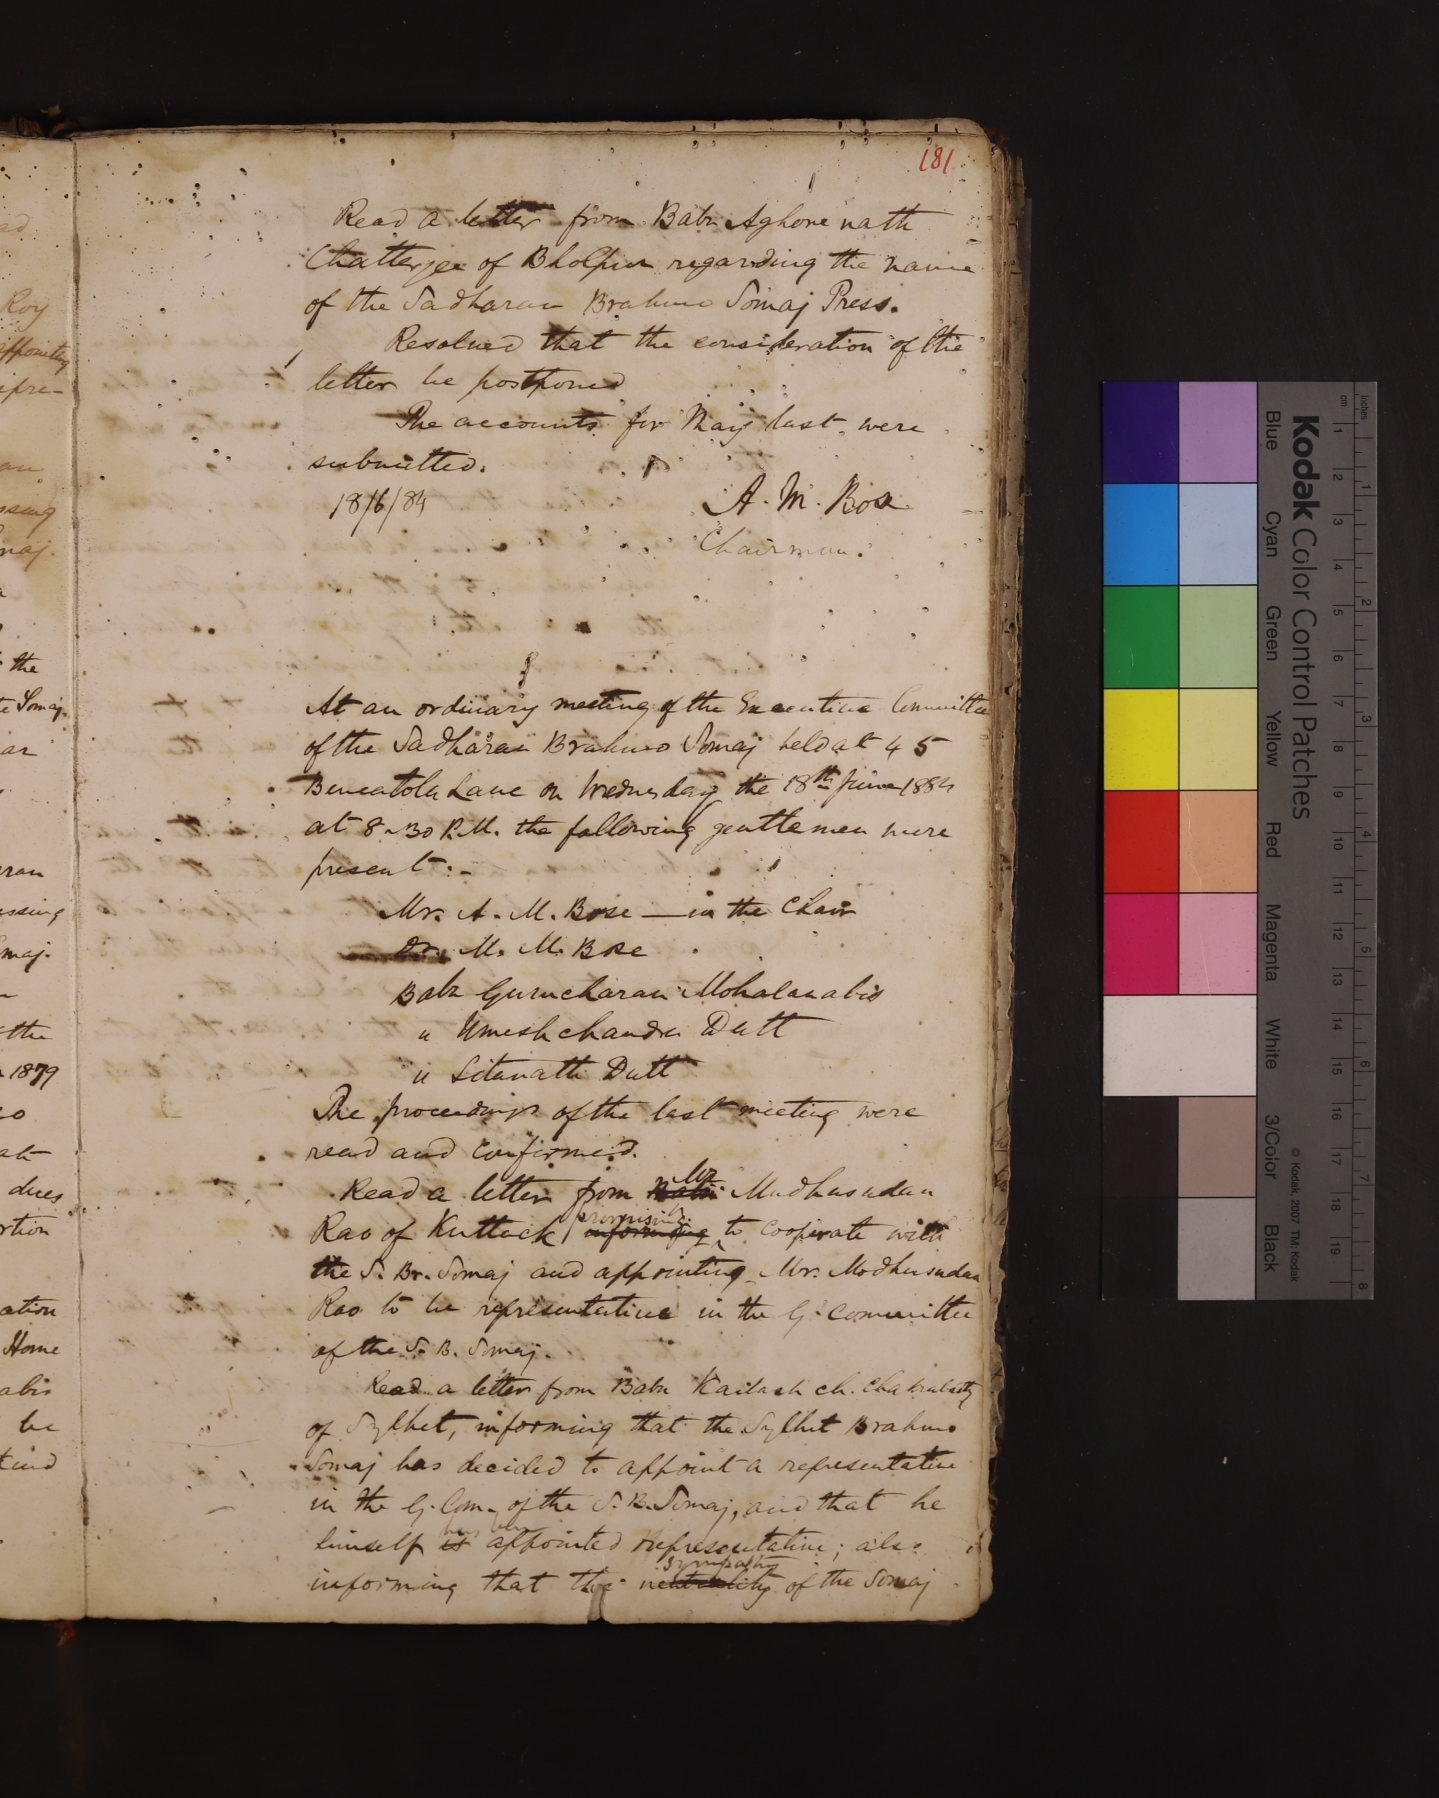 181
Read a letter from Babu Aghore nath
Chatterjee of Bholpur regarding the name
of the Sadharan Brahmo Somaj Press.
Resolved that the consideration of the
letter be postponed
The accounts for May last were
submitted.
18/6/84 A. M. Bose
Chairman.
At an ordinary meeting of the Executive Committee
of the Sadharan Brahmo Somaj held at 45
Beneatola Lane on Wednesday the 18th June 1884
at 8-30 P.M. the following gentlemen were
present:-
Mr. A. M. Bose — in the Chair
Dr. M. M. Bose
Babu Gurucharan Mohalanabis
" Umesh chandra Dutt
" Sitanath Dutt
The proceedings of the last meeting were
read and confirmed.
Read a letter from Babu Mr Madhusudan
Rao of Kuttack informing promising to cooperate with
the S. Br. Somaj and appointing Mr. Modhusudan
Rao to be representative in the G. Committee
of the S. B. Somaj.
Read a letter from Babu Kailash ch. Chakrabatty
of Sylhet, informing that the Sylhet Brahmo
Somaj has decided to appoint a representative
in the G. Com. of the S. B. Somaj, and that he
himself is has been appointed representative; also
informing that the neutrality sympathy of the Somaj
Roy
the
1879
dues
Home
be
Kodak Color Control Patches
Blue Cyan Green Yellow Red Magenta White 3/Color Black
© Kodak, 2007 TM: Kodak
inches 1 2 3 4 5 6 7 8
cm 1 2 3 4 5 6 7 8 9 10 11 12 13 14 15 16 17 18 19